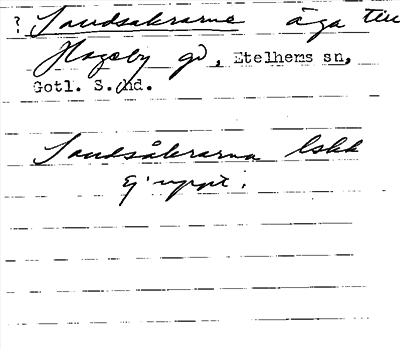 ? Sandsåkrarna äga till
Hageby gd, Etelhems sn,
Gotl. S. hd.
Sandsåkrarna lskk
Ej uppt.